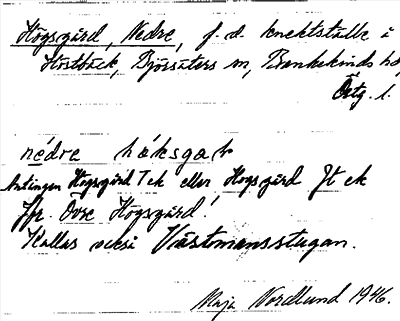 Högsgård, Nedre, f.d. knektställe i
Höstbäck, Björsäters sn, Bankekinds hd,
Östg. l.
nédre háksgaḷr
Antingen Högsgård T ek eller Högsgård Jt ek
Jfr. Övre Högsgård!
Kallas också Västmansstugan.
Maja Nordlund 1946.